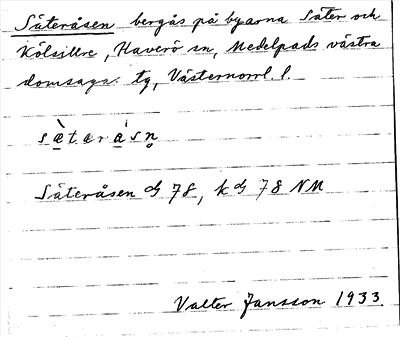 Säteråsen bergås på byarna Säter och
Kölsillre, Haverö sn, Medelpads västra
domsaga tg, Västernorrl. l.
sæ̀tɐrásn̥
Säteråsen 78, k 78 NM
Valter Jansson 1933.